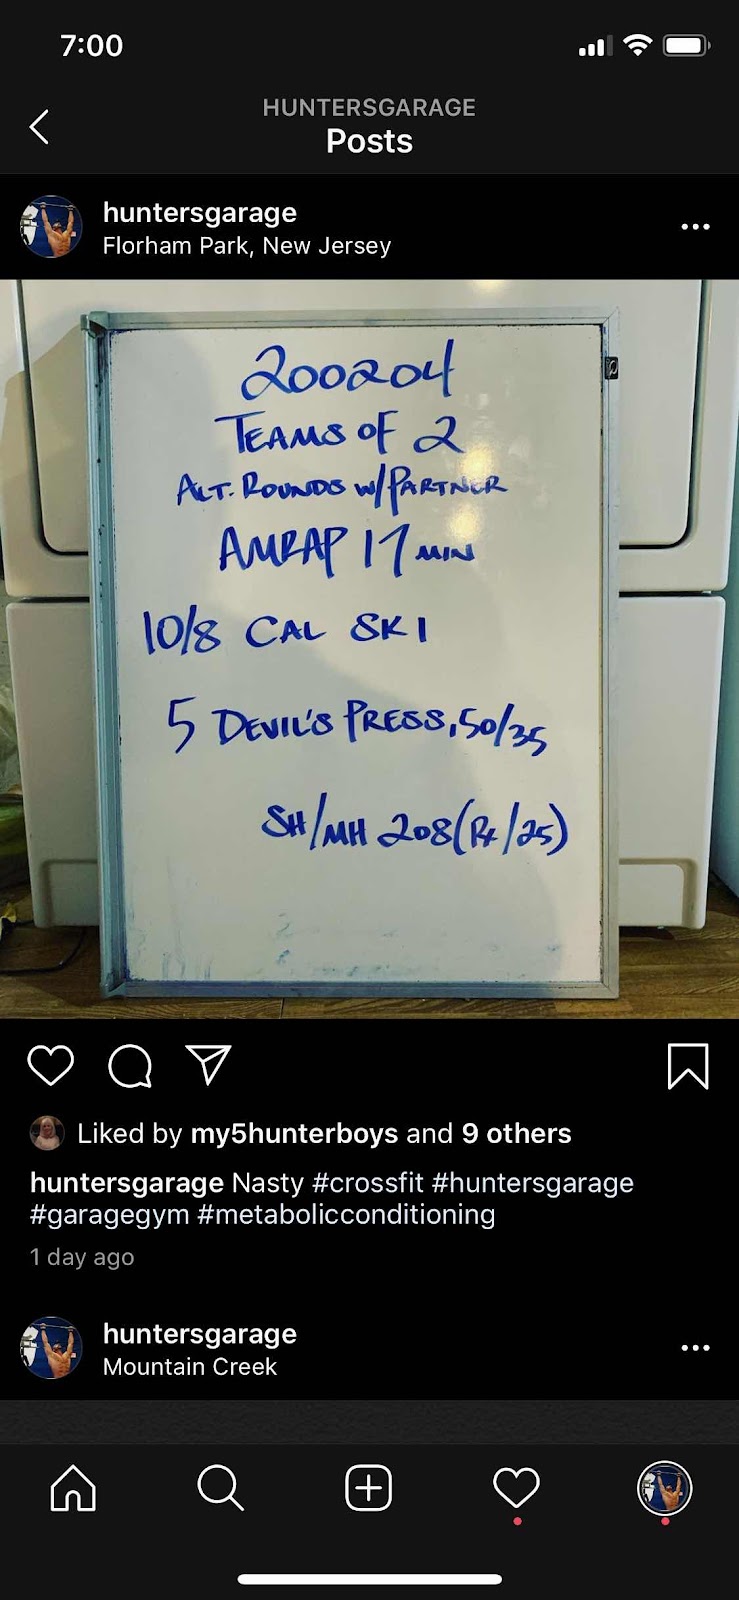 7:00
HUNTERSGARAGE
Posts
huntersgarage
Florham Park, New Jersey
200204
TEAMS OF 2
ALT. ROUNDS W/PARTNER
AMRAP 17 MIN
10/8 CAL SKI
5 DEVIL'S PRESS, 50/35
SH/MH 208(Rx/25)
Liked by my5hunterboys and 9 others
huntersgarage Nasty #crossfit #huntersgarage
#garagegym #metabolicconditioning
1 day ago
huntersgarage
Mountain Creek